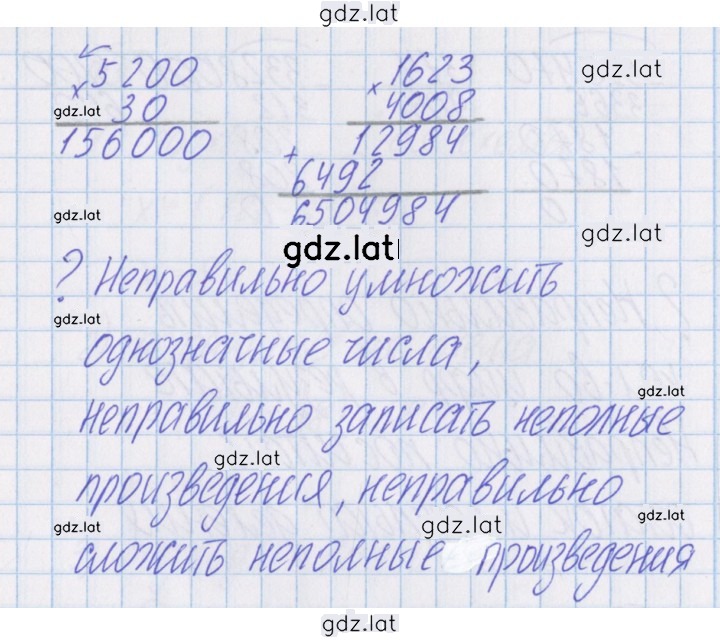 gdz.lat
5200 1623
× ×
gdz.lat
30 4008
gdz.lat
156000 12984
+
6492
gdz.lat
6504984
gdz.lat
gdz.lat
? Неправильно умножить
gdz.lat
однозначные числа,
gdz.lat
неправильно записать неполные
gdz.lat
произведения, неправильно
gdz.lat
gdz.lat
gdz.lat
сложить неполные произведения
gdz.lat